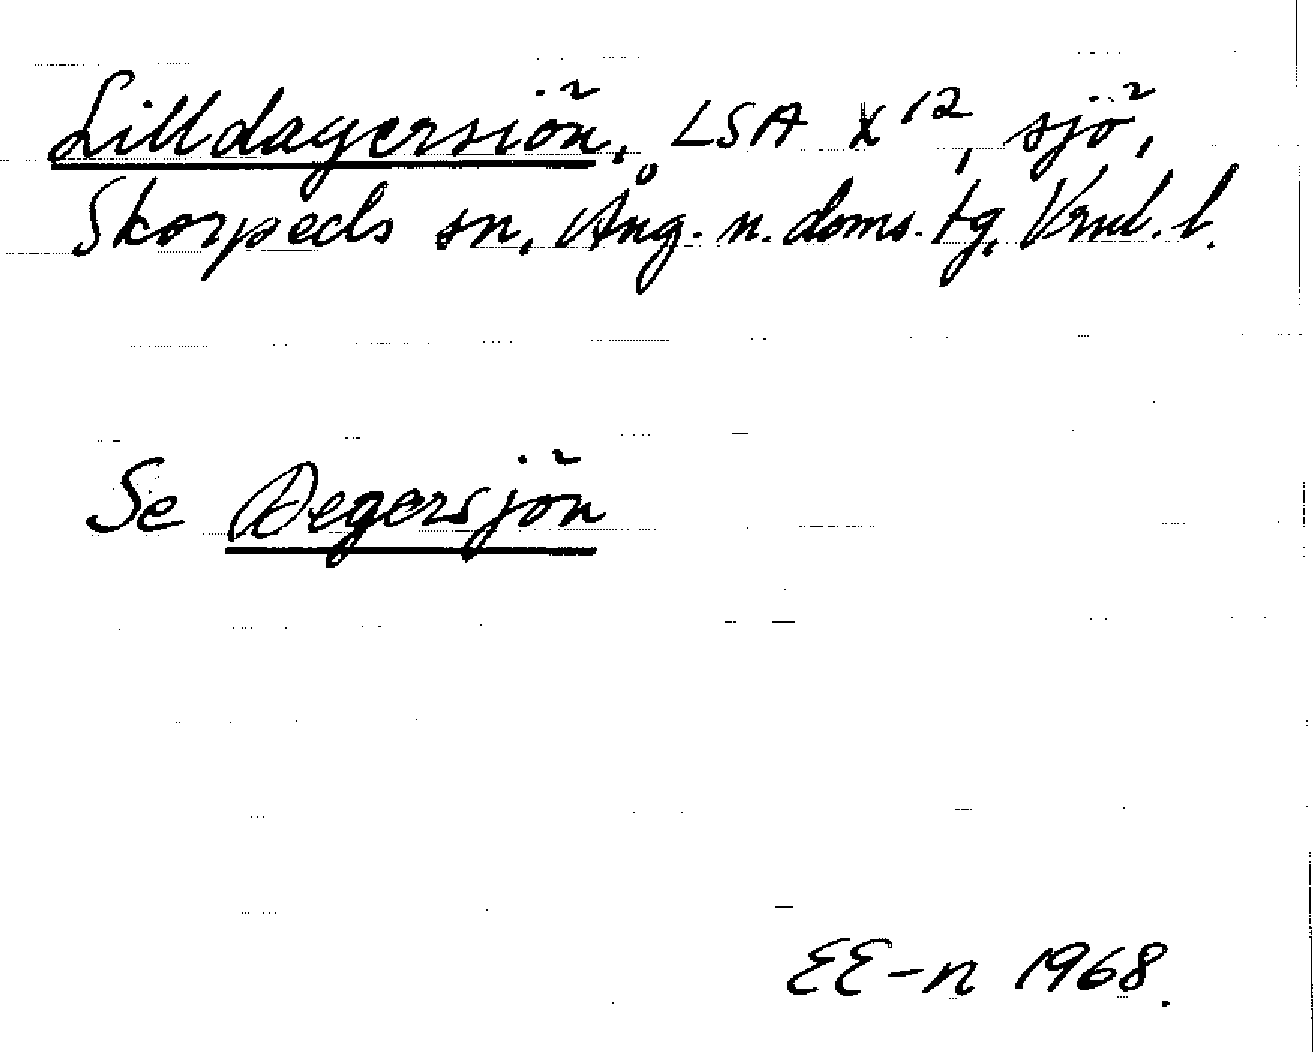 Lilldagersiön, LSA X12, sjö,
Skorpeds sn, Ång. n. doms. tg, Vrnl. l.
Se Degersjön
EE-n 1968.